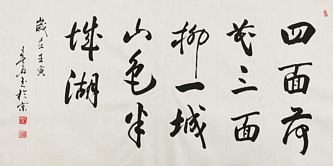 四面荷
花三面
柳一城
山色半
城湖
歲在壬寅